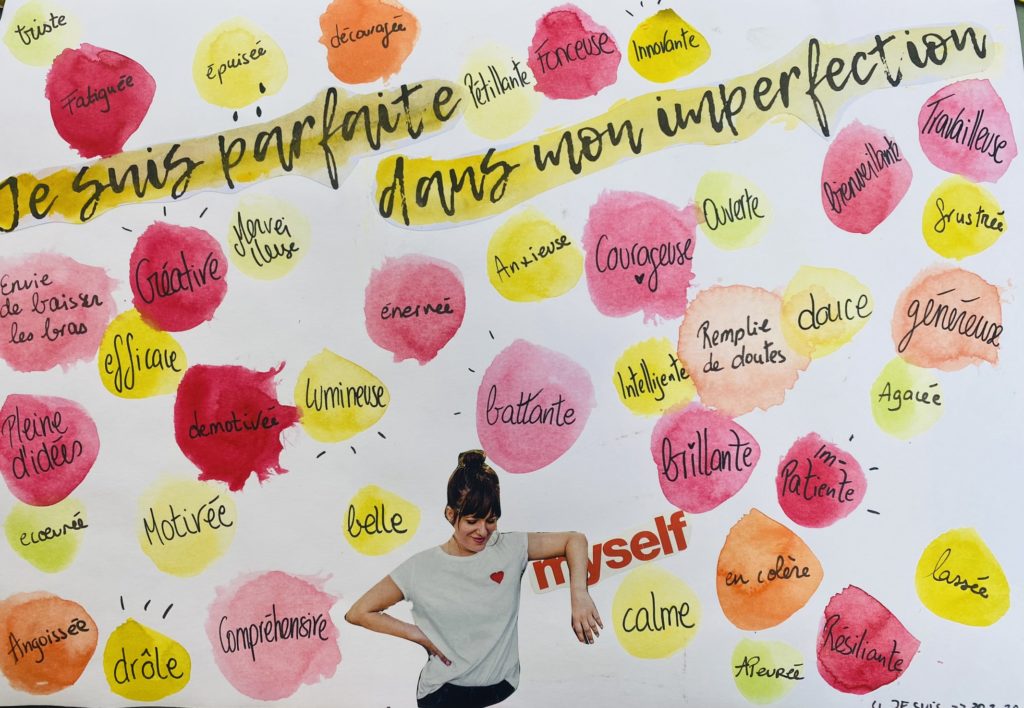 triste
Fatiguée
épuisée
découragée
Pétillante
Fonceuse
Innovante
Je suis parfaite
dans mon imperfection
Travailleuse
bienveillante
frustrée
Ouverte
Courageuse
Anxieuse
Mervei
lleuse
Créative
Envie
de baisser
les bras
énervée
efficace
Lumineuse
demotivée
Pleine
d'idées
battante
Intelligente
Remplie
de doutes
douce
généreuse
Agacée
brillante
Im-
Patiente
ecoeurée
Motivée
belle
myself
en colère
lassée
Angoissée
drôle
Compréhensive
calme
Apeurée
Résiliante